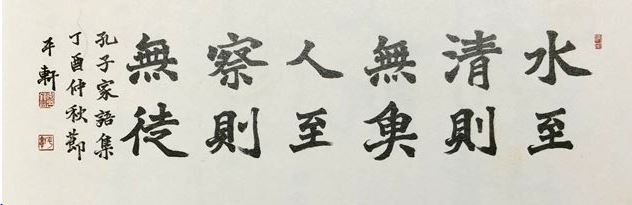 水至
清則
無魚
人至
察則
無徒
孔子家語集
丁酉仲秋節
平軒